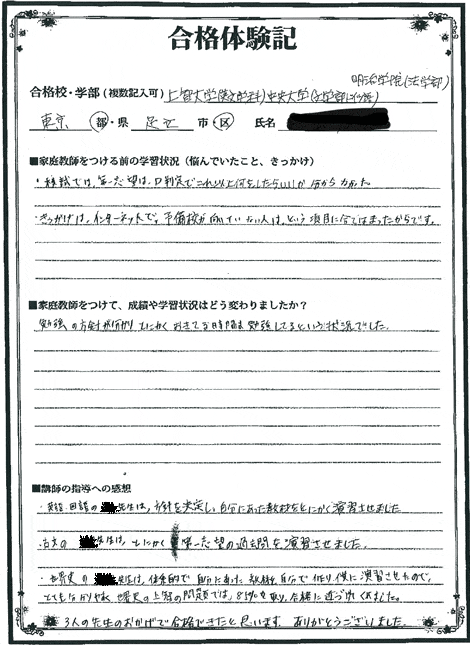 合格体験記
明治学院(法学部)
合格校・学部(複数記入可) 上智大学(文学科) 中央大学(文学部)
東京 都・県 足立 市・区 氏名
■家庭教師をつける前の学習状況(悩んでいたこと、きっかけ)
・模試では、第一志望は、D判定でこれ以上何をしたらいいか分からなかった
・きっかけは、インターネットで。予備校が向いていない人は、という項目に当てはまったからです。
■家庭教師をつけて、成績や学習状況はどう変わりましたか?
勉強の方針が分かり とにかく おきてる時間は勉強してるという状況でした。
■講師の指導への感想
・英語・国語の 先生は、方針を決定し、自分にあった教材をとにかく演習させました
・古文の 先生は、とにかく 第一志望の過去問を演習させました。
・世界史の 先生は、体系的で 自分にあった 教材を自分で作り、僕に演習させたので、
とても分かりやすく 世界史の上智の問題では、85%を取り、合格に近づけました。
3人の先生のおかげで合格できたと思います ありがとうございました。